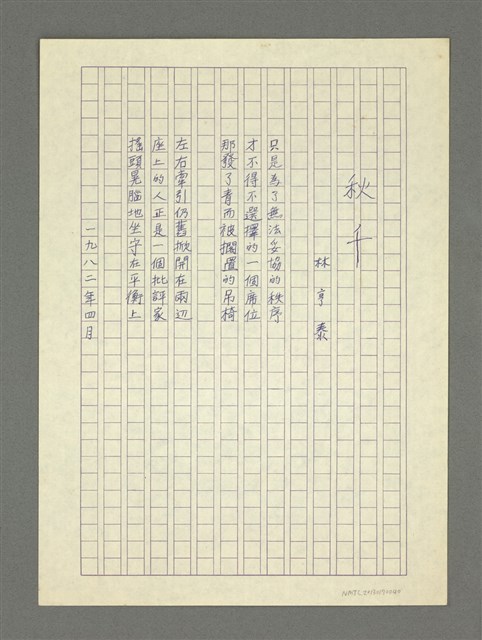 秋千
林亨泰
只是為了無法妥協的秩序
才不得不選擇的一個席位
那發了青而被擱置的吊椅
左右牽引仍舊掀開在兩辺
座上的人正是一個批評家
搖頭晃腦地坐守在平衡上
一九八二年四月